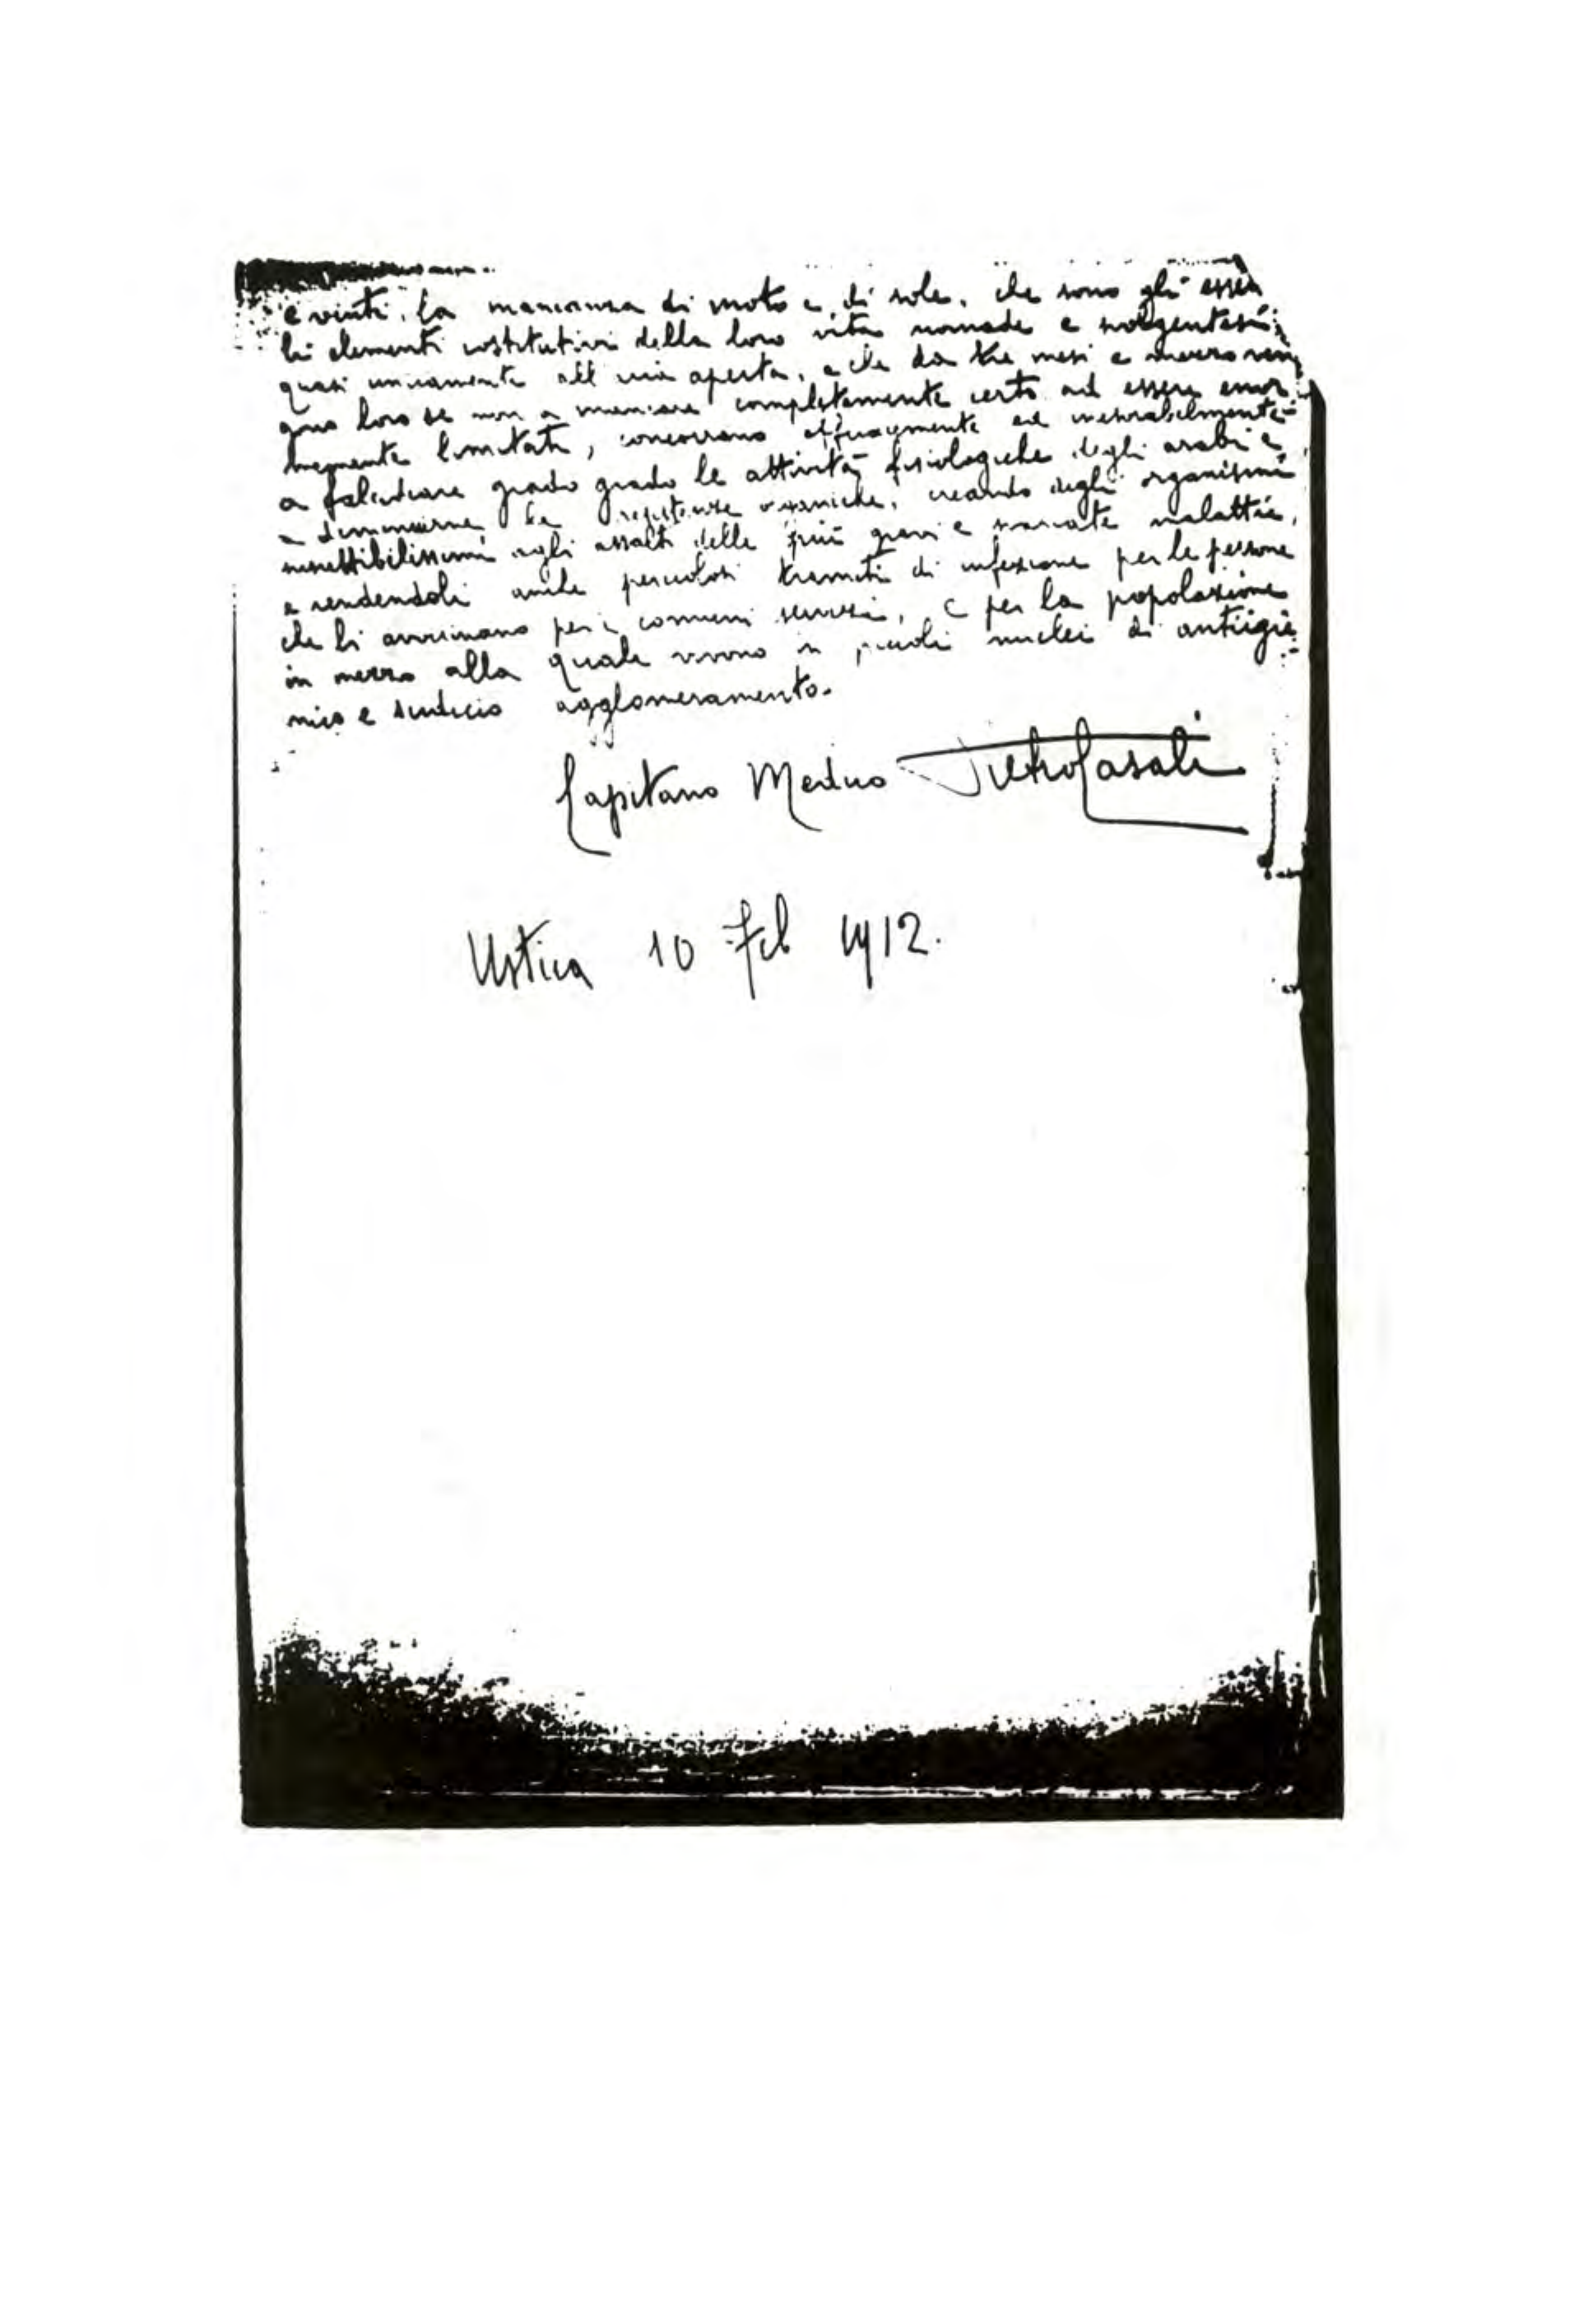 e vinti, la mancanza di moto e di sole, che sono gli essen
li elementi costitutivi della loro vita nomade e svolgentesi
quasi unicamente all'aria aperta, e che da tre mesi e mezzo ven
gono loro se non a mancare completamente certo ad essere enor
memente limitati, concorrono efficacemente ed inesorabilmente
a falcidiare grado grado le attività fisiologiche degli arabi e
a diminuirne le resistenze organiche, creando degli organismi
suscettibilissimi agli assalti delle più gravi e svariate malattie,
e rendendoli anche pericolosi tramiti di infezione per le persone
che li avvicinano per i comuni servizi, e per la popolazione
in mezzo alla quale vivono in piccoli nuclei di antiigie
nico e sudicio agglomeramento.
Capitano Medico Pietro Casali
Ustica 10 Feb 1912.